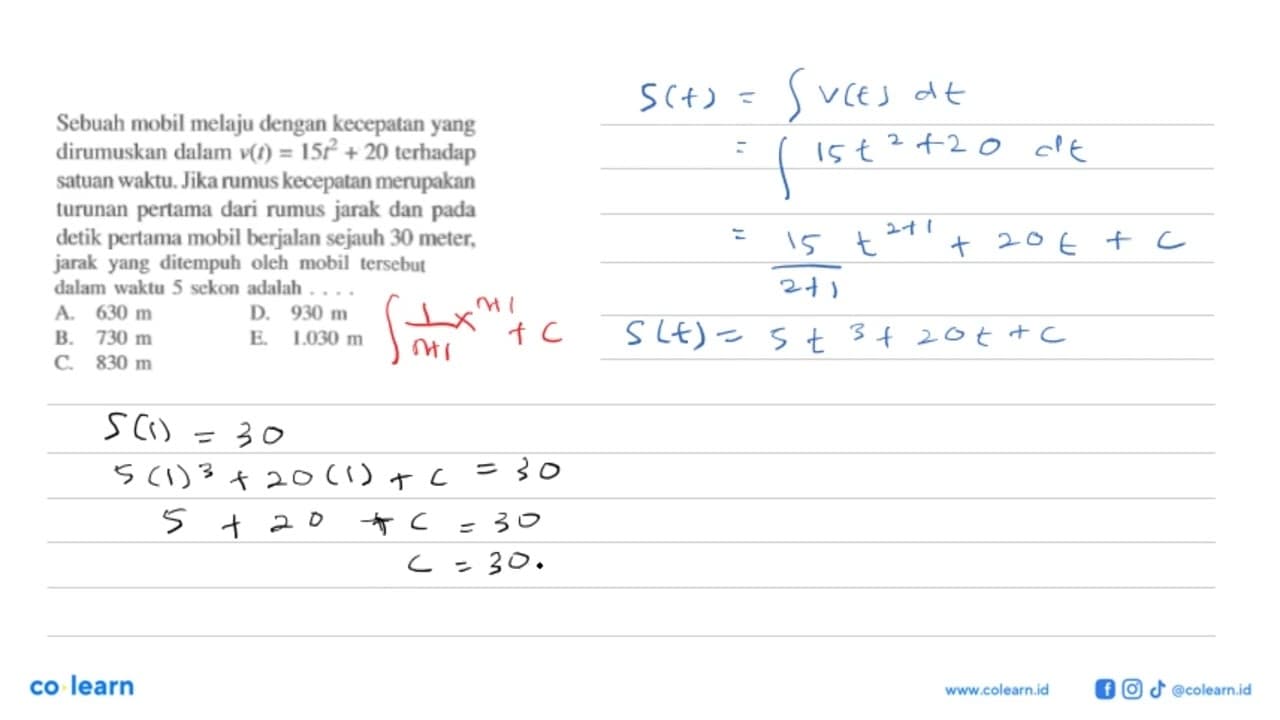 Sebuah mobil melaju dengan kecepatan yang
dirumuskan dalam v(t) = 15t² + 20 terhadap
satuan waktu. Jika rumus kecepatan merupakan
turunan pertama dari rumus jarak dan pada
detik pertama mobil berjalan sejauh 30 meter,
jarak yang ditempuh oleh mobil tersebut
dalam waktu 5 sekon adalah . . . .
A. 630 m D. 930 m
B. 730 m E. 1.030 m
C. 830 m
∫ 1/(n+1) x^(n+1) + C
S(t) = ∫ v(t) dt
= ∫ 15t² + 20 dt
= 15/(2+1) t^(2+1) + 20t + C
S(t) = 5t³ + 20t + C
S(1) = 30
5(1)³ + 20(1) + C = 30
5 + 20 + C = 30
C = 30.
co learn
www.colearn.id
@colearn.id